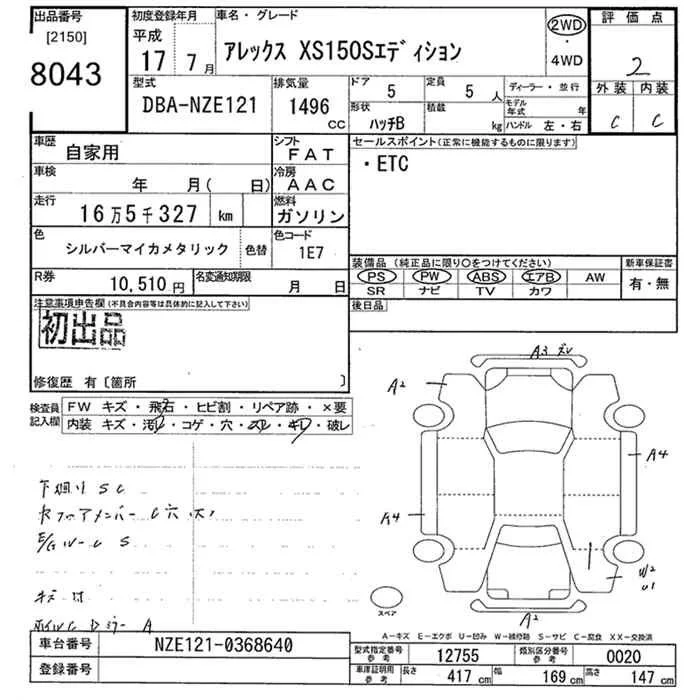 出品番号
[2150]
8043
初度登録年月
平成
17 7月
車名・グレード
アレックス XS150Sエディション
2WD
・
4WD
評価点
2
外装 内装
C C
型式
DBA-NZE121
排気量
1496 CC
ドア 5
定員 5 人
形状 ハッチB
積載 kg
ディーラー・並行
モデル年式 年
ハンドル 左・右
車歴 自家用
シフト FAT
車検 年 月( 日)
冷房 AAC
走行 16万5千327 km
燃料 ガソリン
色 シルバーマイカメタリック 色替
色コード 1E7
R券 10,510円
名変通知期限 月 日
セールスポイント(正常に機能するものに限ります)
・ETC
装備品(純正品に限り○をつけてください)
PS PW ABS エアB AW
SR ナビ TV カワ
新車保証書
有・無
後日品
注意事項申告欄(不具合内容等は具体的に記入して下さい)
初出品
修復歴 有〔箇所 〕
検査員記入欄
FW キズ・飛石・ヒビ割・リペア跡・×要
内装 キズ・汚レ・コゲ・穴・スレ・キレ・破レ
下廻り SC
E/Gルーム S
キズ
A
A3
A2
A4
A4
W2
U1
A2
スペア
A-キズ E-エクボ U-凹み W-補修跡 S-サビ C-腐食 XX-交換済
車台番号 NZE121-0368640
登録番号
型式指定番号 参考 12755
類別区分番号 参考 0020
車庫証明用 参考 長さ 417 cm 幅 169 cm 高さ 147 cm